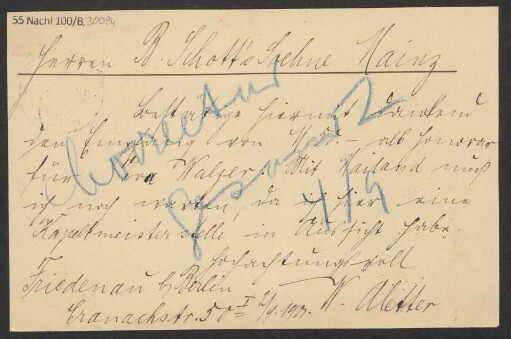 55 Nachl 100/B, 30094
Herren B. Schott's Soehne Mainz
Bestätige hiermit dankend
den Empfang von M. als Honorar
für Walzer. Mit Mailand muß
ich noch warten, da ich hier eine
Kapellmeisterstelle in Aussicht habe.
Hochachtungsvoll
Friedenau b/Berlin W. Aletter
Cranachstr. 50 I
Correctur
gesandt
4/9